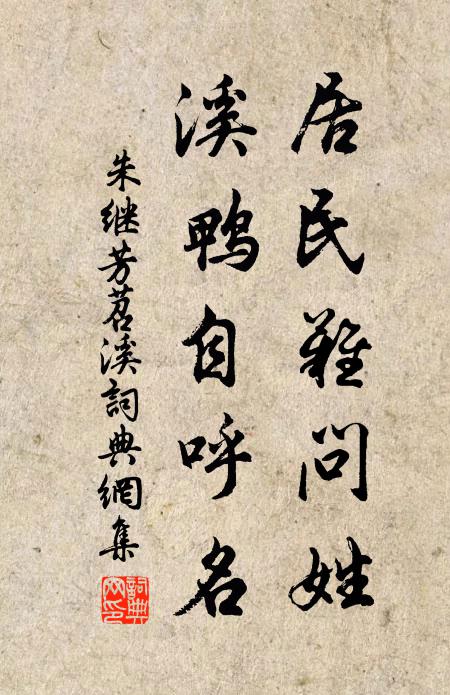 居民難问姓
溪鸭自呼名
朱继芳苕溪詞典網集
詞典网印